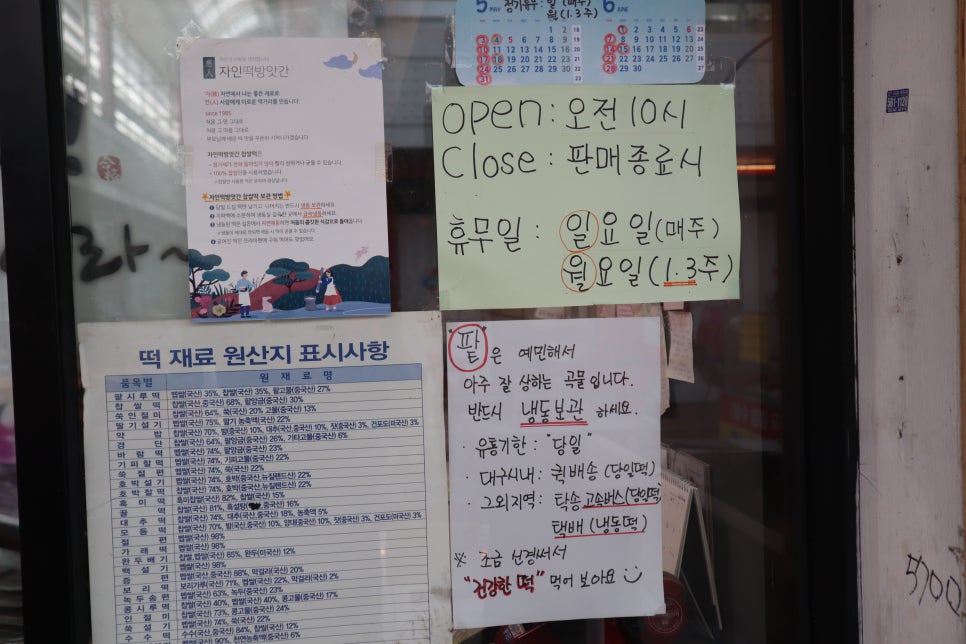 5 MAY 정기휴무: 일 (매주)
월 (1.3주)
6 JUNE
자인떡방앗간
자(慈) 자연에서 나는 좋은 재료로
인(人) 사람에게 이로운 먹거리를 만듭니다.
since 1985
처음 그 맛 그대로
처음 그 마음 그대로
자인떡방앗간 찹쌀떡은
• 100% 찹쌀만을 사용하였습니다.
자인떡방앗간 찹쌀떡 보관 방법
open : 오전 10시
Close : 판매종료시
휴무일 : 일요일(매주)
월요일(1.3주)
떡 재료 원산지 표시사항
품목별 원 재료 명
팥시루떡 멥쌀(국산) 35%, 찹쌀(국산) 35%, 팥고물(중국산) 27%
찹쌀떡 찹쌀(국산) 68%, 팥앙금(중국산) 30%
쑥인절미 찹쌀(국산) 64%, 쑥(국산) 20% 고물(중국산) 13%
딸기설기 멥쌀(국산) 75%, 딸기 농축액(국산) 22%
약밥 찹쌀(국산) 70%, 밤(중국산) 10%, 대추(국산,중국산) 10%, 잣(중국산) 3%, 건포도(미국산) 3%
경단 찹쌀(국산) 64%, 팥앙금(중국산) 26%, 기타고물(중국산) 6%
바람떡 멥쌀(국산) 74%, 팥앙금(중국산) 23%
기피찰떡 찹쌀(국산) 74%, 기피고물(중국산) 22%
쑥절편 멥쌀(국산) 74%, 쑥(국산) 22%
호박설기 멥쌀(국산) 74%, 호박(중국산,뉴질랜드산) 22%
호박찰떡 찹쌀(국산) 74%, 호박(중국산,뉴질랜드산) 22%
흑미떡 흑미찹쌀(국산) 82%, 찹쌀(국산) 15%
꿀떡 멥쌀(국산) 81%, 흑설탕
16%
대추떡 찹쌀(국산) 74%, 대추(국산,중국산) 18%, 농축액 5%
모듬떡 찹쌀(국산) 70%, 밤(국산,중국산) 10%, 양대(중국산) 10%, 잣(중국산) 3%, 건포도(미국산) 3%
절편 멥쌀(국산) 98%
가래떡 멥쌀(국산) 98%
완두배기 찹쌀,멥쌀(국산) 85%, 완두(미국산) 12%
백설기 멥쌀(국산) 98%
증편 멥쌀(국산,중국산) 88%, 막걸리(국산) 20%
보리떡 보리가루(국산) 71%, 멥쌀(국산) 22%, 막걸리(국산) 2%
녹두송편 멥쌀(국산) 63%, 녹두(중국산) 23%
콩시루떡 멥쌀(국산) 40%, 찹쌀(국산) 40%, 콩고물(중국산) 17%
인절미 찹쌀(국산) 73%, 콩고물(중국산) 24%
쑥떡 찹쌀(국산) 74%, 쑥(국산) 22%
수수떡 수수(국산,중국산) 84%, 찹쌀(국산) 12%
"팥"은 예민해서
아주 잘 상하는 곡물입니다.
반드시 냉동보관 하세요.
· 유통기한 : "당일"
· 대구시내 : 퀵배송 (당일떡)
· 그외지역 : 탁송고속버스(당일떡)
택배 (냉동떡)
※ 조금 신경써서
"건강한 떡" 먹어 보아요
라~
581-1120